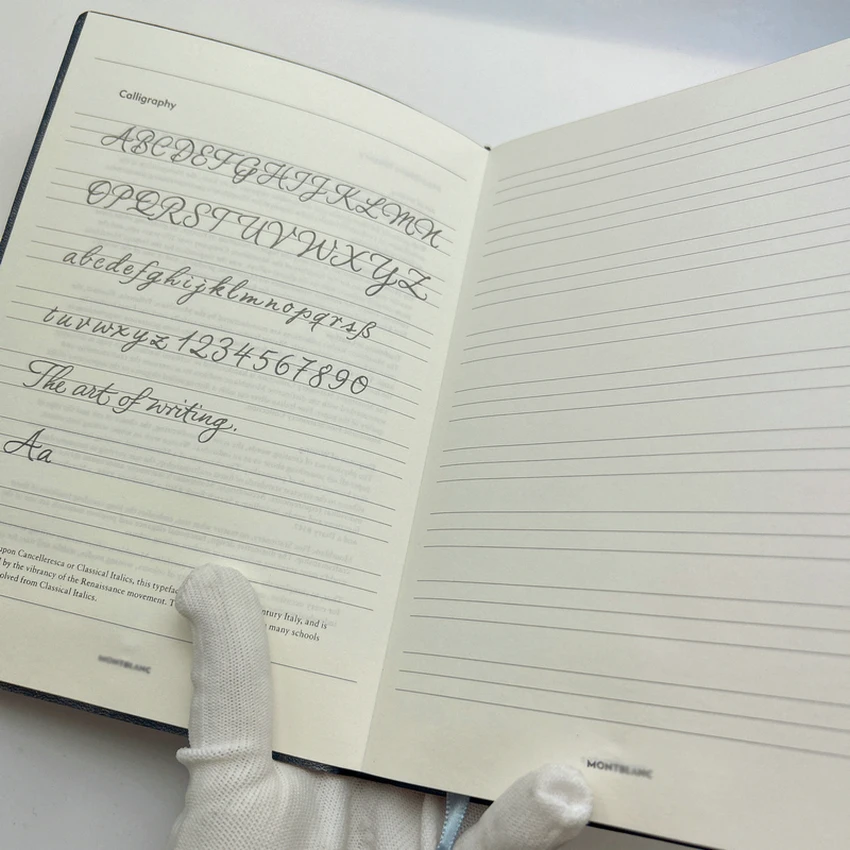 Calligraphy
ABCDEFGHIJKLMN
OPQRSTUVWXYZ
abcdefghijklmnopqrsß
tuvwxyz 1234567890
The art of writing.
Aa
upon Cancelleresca or Classical Italics, this typeface
by the vibrancy of the Renaissance movement. ntury Italy, and is
olved from Classical Italics. many schools
MONTBLANC
MONTBLANC